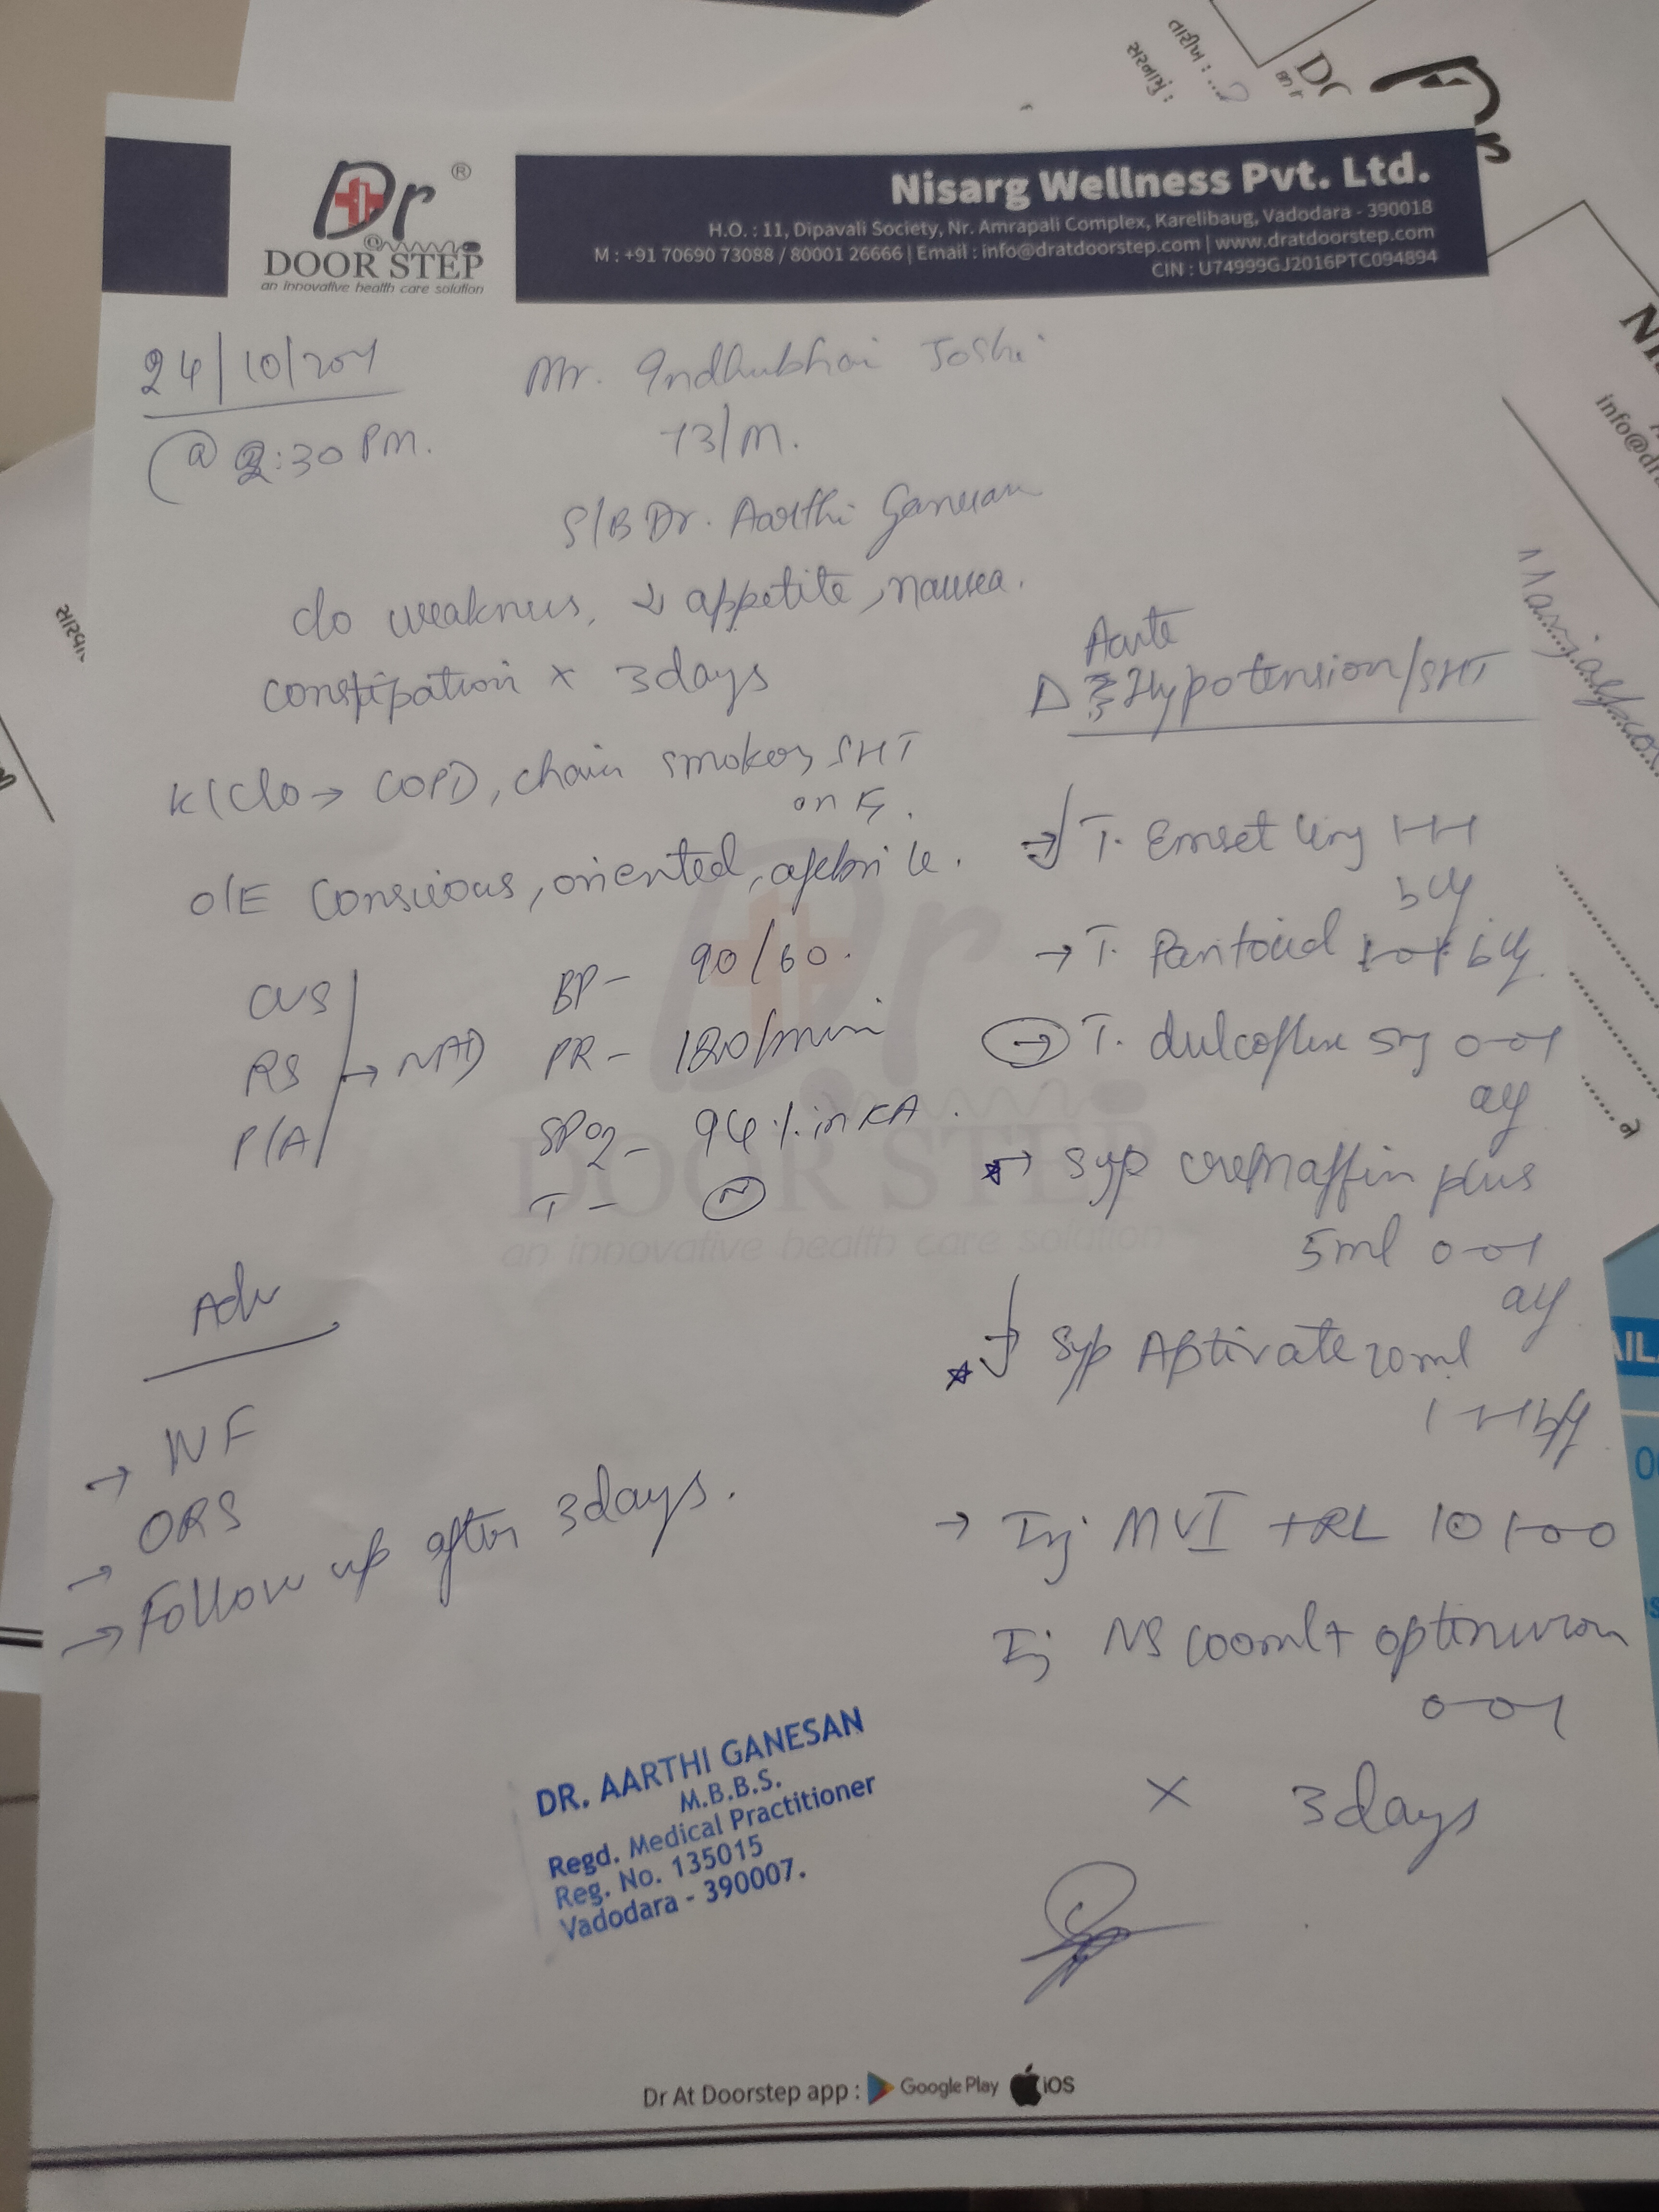 Dr ®
@
DOOR STEP
an innovative health care solution
Nisarg Wellness Pvt. Ltd.
H.O. : 11, Dipavali Society, Nr. Amrapali Complex, Karelibaug, Vadodara - 390018
M : +91 70690 73088 / 80001 26666 | Email : info@dratdoorstep.com | www.dratdoorstep.com
CIN : U74999GJ2016PTC094894
24/10/
@ 2:30 PM.
Mr. Indhubhai Joshi
73/M.
S/B Dr. Aarthi Ganesan
c/o weakness, ↓ appetite, nausea.
constipation x 3 days
K/C/o → COPD, chain smoker, SHT
on
O/E Conscious, oriented, afebrile.
CVS
RS → NAD
P/A
BP - 90/60.
PR - 120/min
SPO2 - 94 % in RA.
T - N
Adv
→
→ ORS
→ Follow up after 3 days.
Acute
Δ Hypotension/SHT
→ T. Emset 4mg 1-1-1
→ T. Pantocid 1-0-1
→ T. dulcoflex 5mg 0-0-1
→ Syp cremaffin plus
5ml 0-0-1
→ Syp Aptivate 10ml
1-1-1
→ Inj MVI + RL 1-0-0
Inj NS + optineuron
0-0-1
x 3 days
DR. AARTHI GANESAN
M.B.B.S.
Regd. Medical Practitioner
Reg. No. 135015
Vadodara - 390007.
Dr At Doorstep app : Google Play iOS